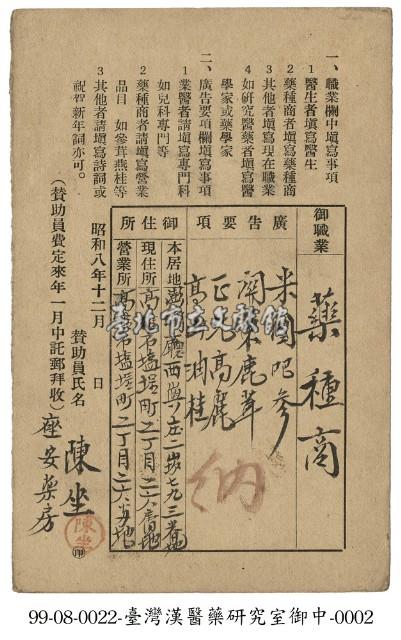 一、職業欄中填寫事項
1 醫生者填寫醫生
2 藥種商者填寫藥種商
3 其他者填寫現在職業
如研究醫藥者填寫醫
學家或藥學家
二、廣告要項欄填寫事項
1 業醫者請填寫專門科
如兒科專門等
2 藥種商者請填寫營業
品目 如參茸燕桂等
3 其他者請填寫詩詞或
祝賀新年詞亦可。
御職業
藥種商
廣告要項
米國吧參
關東鹿茸
正光高麗
高山油桂
納
御住所
本居地
澎湖廳西嶼庄
現住所
高雄市塩埕町
營業所
高雄市塩埕町
昭和八年十二月 日
贊助員氏名
陳坐
座安藥房
陳坐
印
(贊助員費定來年一月中託郵拜收)
臺北市立文獻館
99-08-0022-臺灣漢醫藥研究室御中-0002